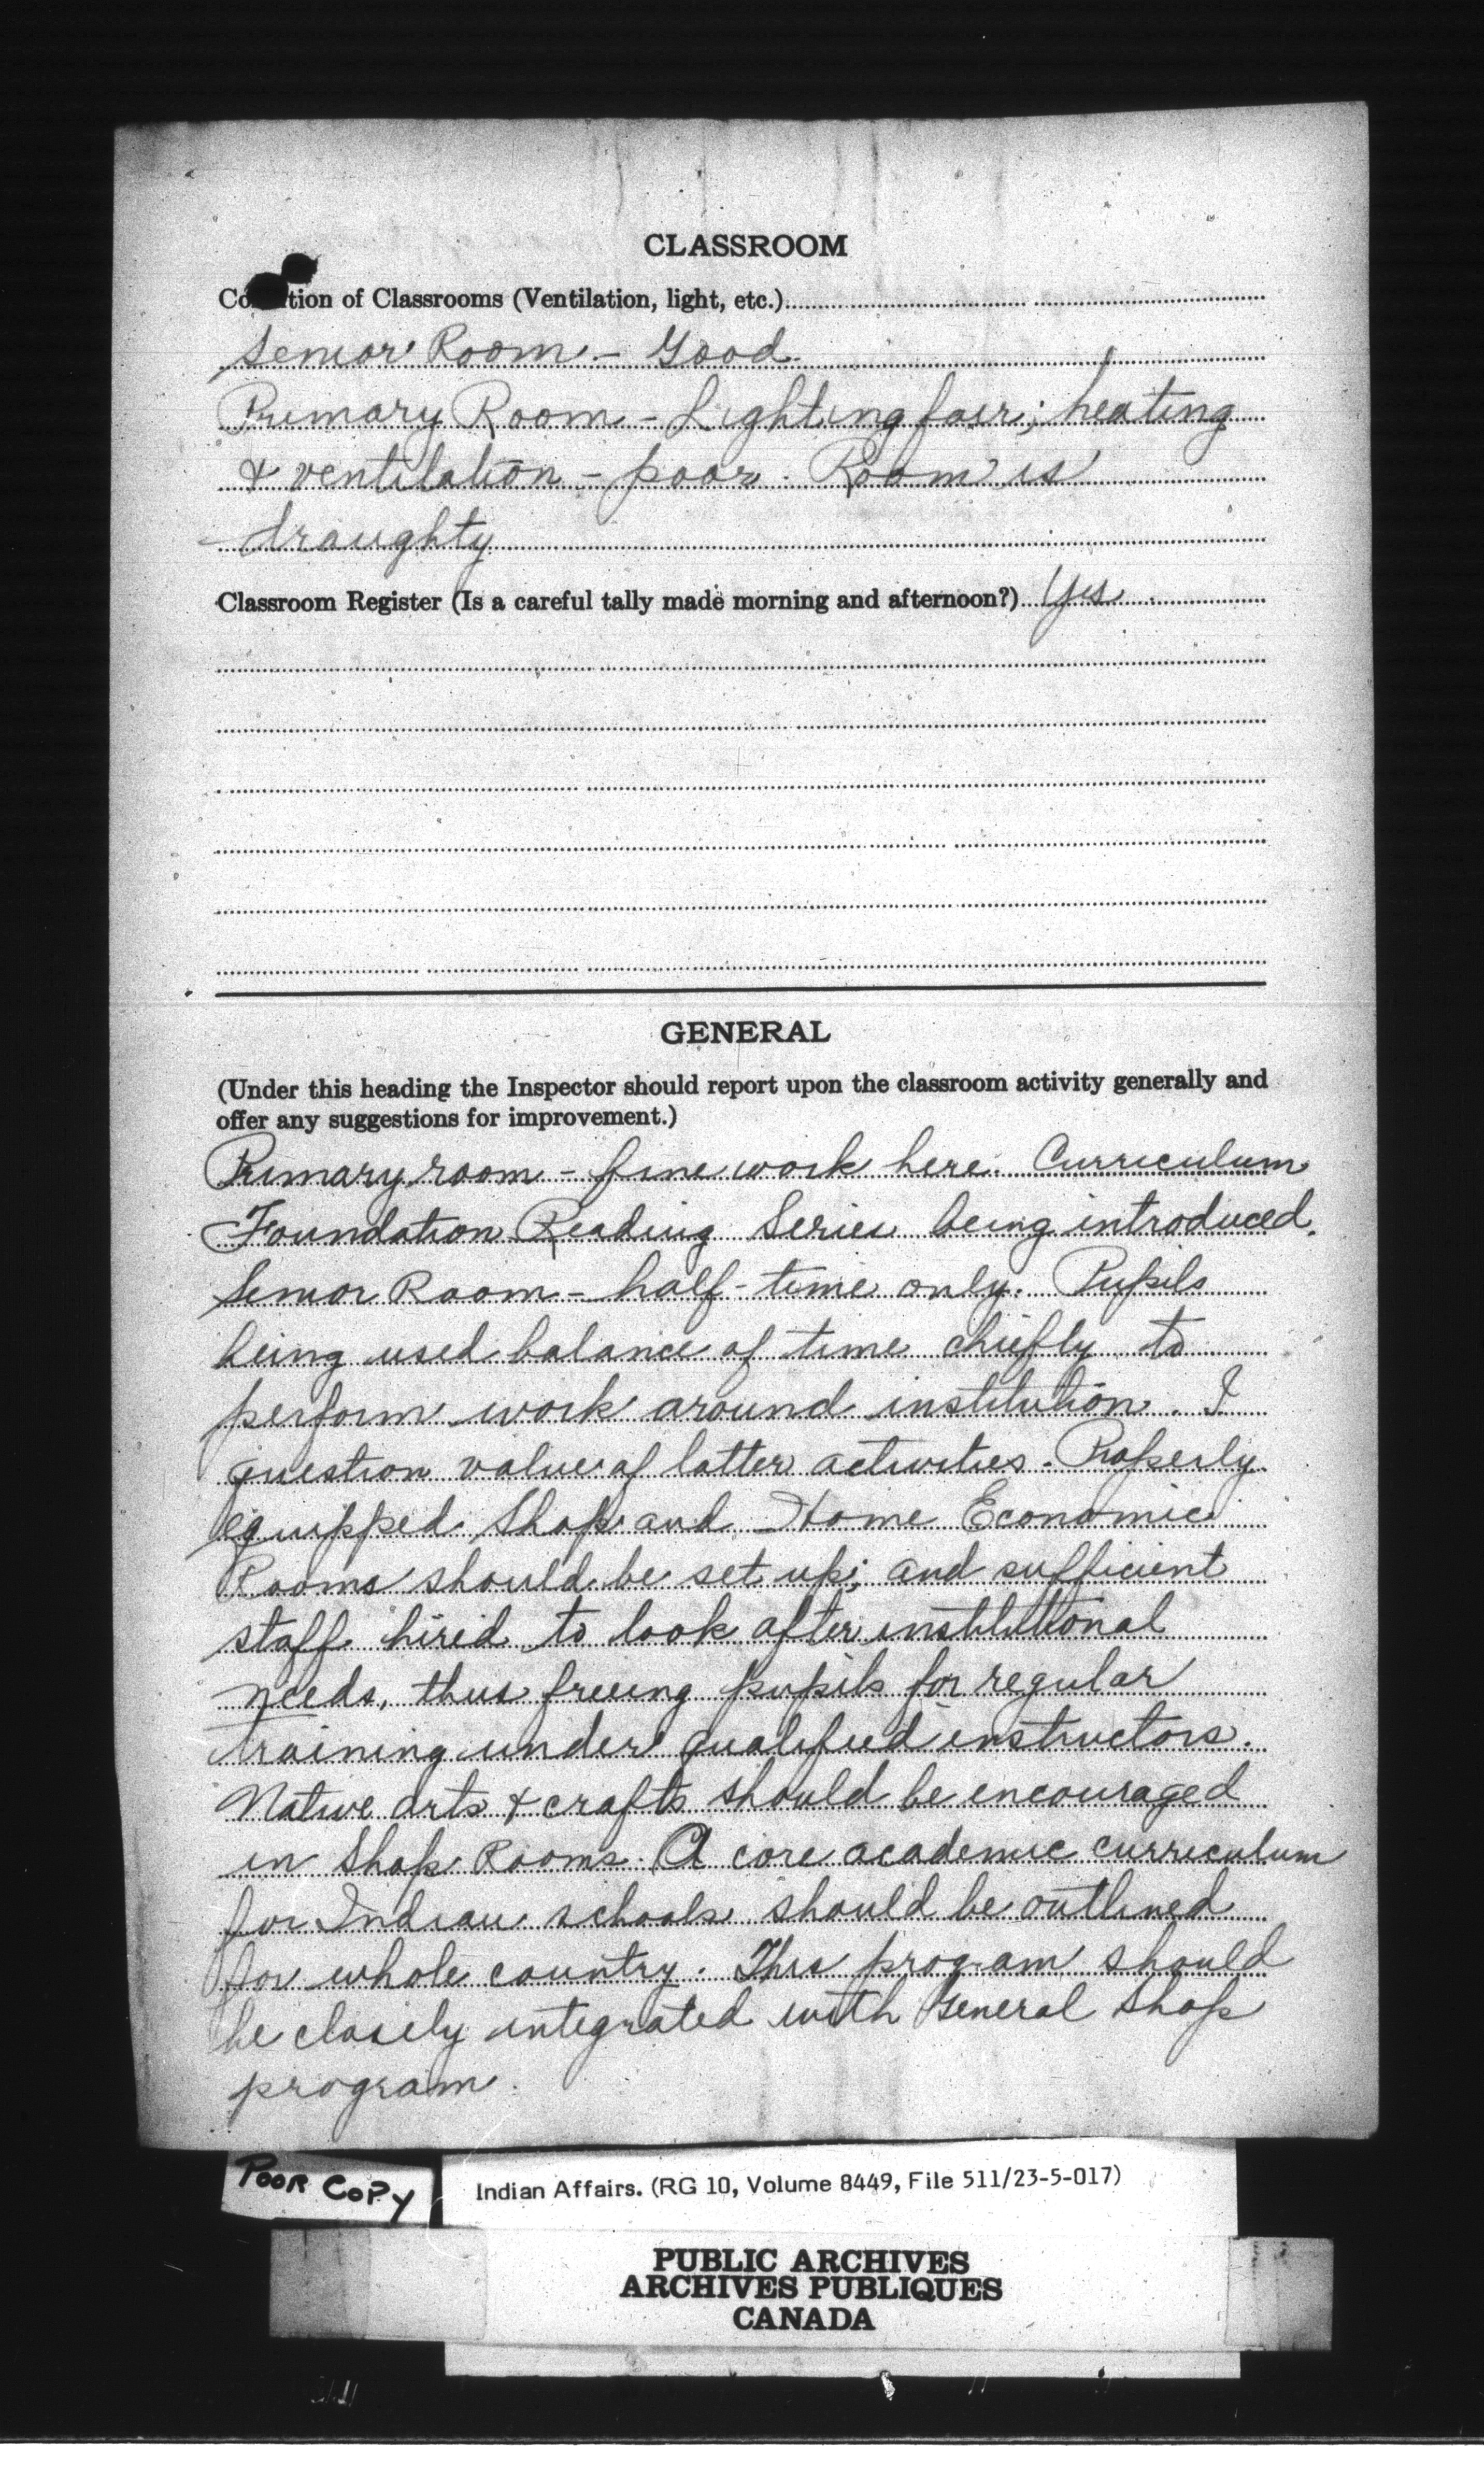 CLASSROOM
Co tion of Classrooms (Ventilation, light, etc.)
Senior Room - Good.
Primary Room - Lighting fair; heating
& ventilation - poor. Room is
draughty
Classroom Register (Is a careful tally made morning and afternoon?) Yes
GENERAL
(Under this heading the Inspector should report upon the classroom activity generally and
offer any suggestions for improvement.)
Primary room - fine work here. Curriculum
Foundation Reading Series being introduced.
Senior Room - half-time only. Pupils
being used balance of time chiefly to
perform work around institution. I
question value of latter activities. Properly
equipped Shop and Home Economic
Rooms should be set up; and sufficient
staff hired to look after institutional
needs, thus freeing pupils for regular
training under qualified instructors.
Native arts & crafts should be encouraged
in Shop Rooms. A core academic curriculum
for Indian schools should be outlined
for whole country. This program should
be closely integrated with General Shop
program.
POOR COPY
Indian Affairs. (RG 10, Volume 8449, File 511/23-5-017)
PUBLIC ARCHIVES
ARCHIVES PUBLIQUES
CANADA